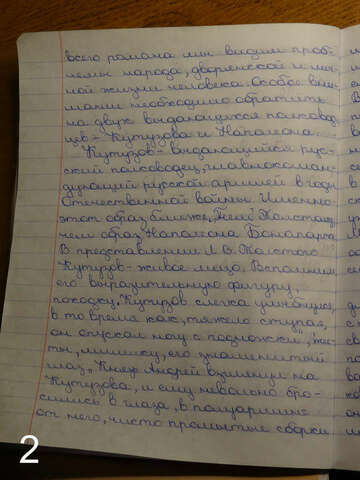 всего романа мы видим проб-
лемы народа, дворянской и лич-
ной жизни человека. Особое вни-
мание необходимо обратить
на двух выдающихся полковод-
цев - Кутузова и Наполеона.
Кутузов - выдающийся рус-
ский полководец, главнокоман-
дующий русской армией в годы
Отечественной войны. Именно
этот образ ближе Толстому,
чем образ Наполеона Бонапарта.
В представлении Л. Н. Толстого
Кутузов - живое лицо. Вспомним,
его выразительную фигуру,
походку. Кутузов слегка улыбнулся,
в то время как, тяжело ступая,
он опускал ногу с подножки,
его знаменитый
глаз, "Князь Андрей взглянул на
Кутузова, и ему невольно бро-
сились в глаза, в полуаршине
от него, чисто промытые сборки
2